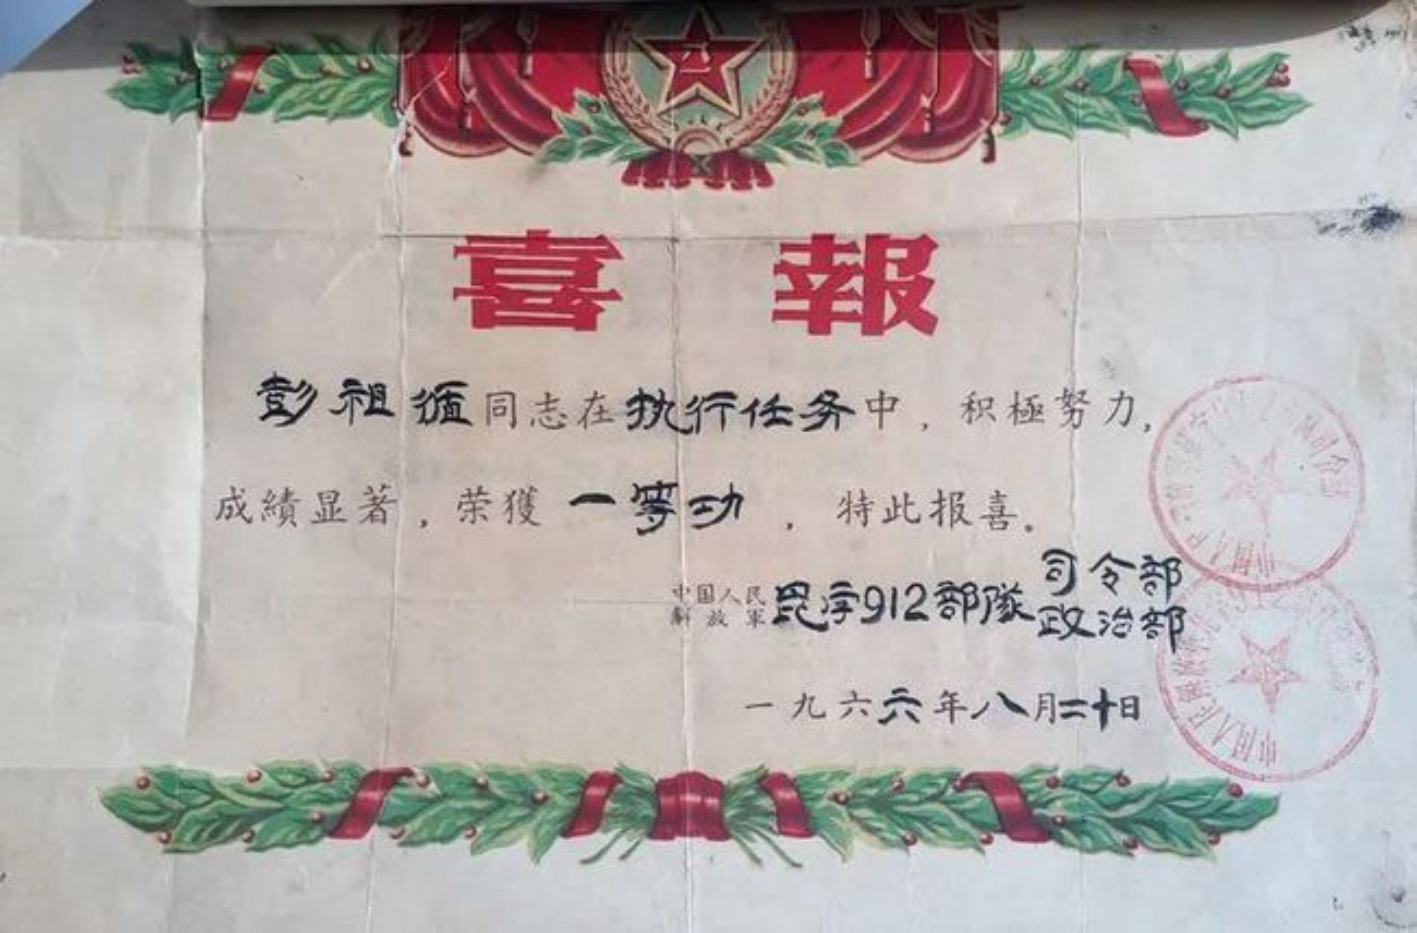 八一
喜報
彭祖循同志在执行任务中，积極努力，
成績显著，荣獲一等功，特此报喜。
中国人民解放軍昆字912部隊司令部政治部
一九六六年八月二十日